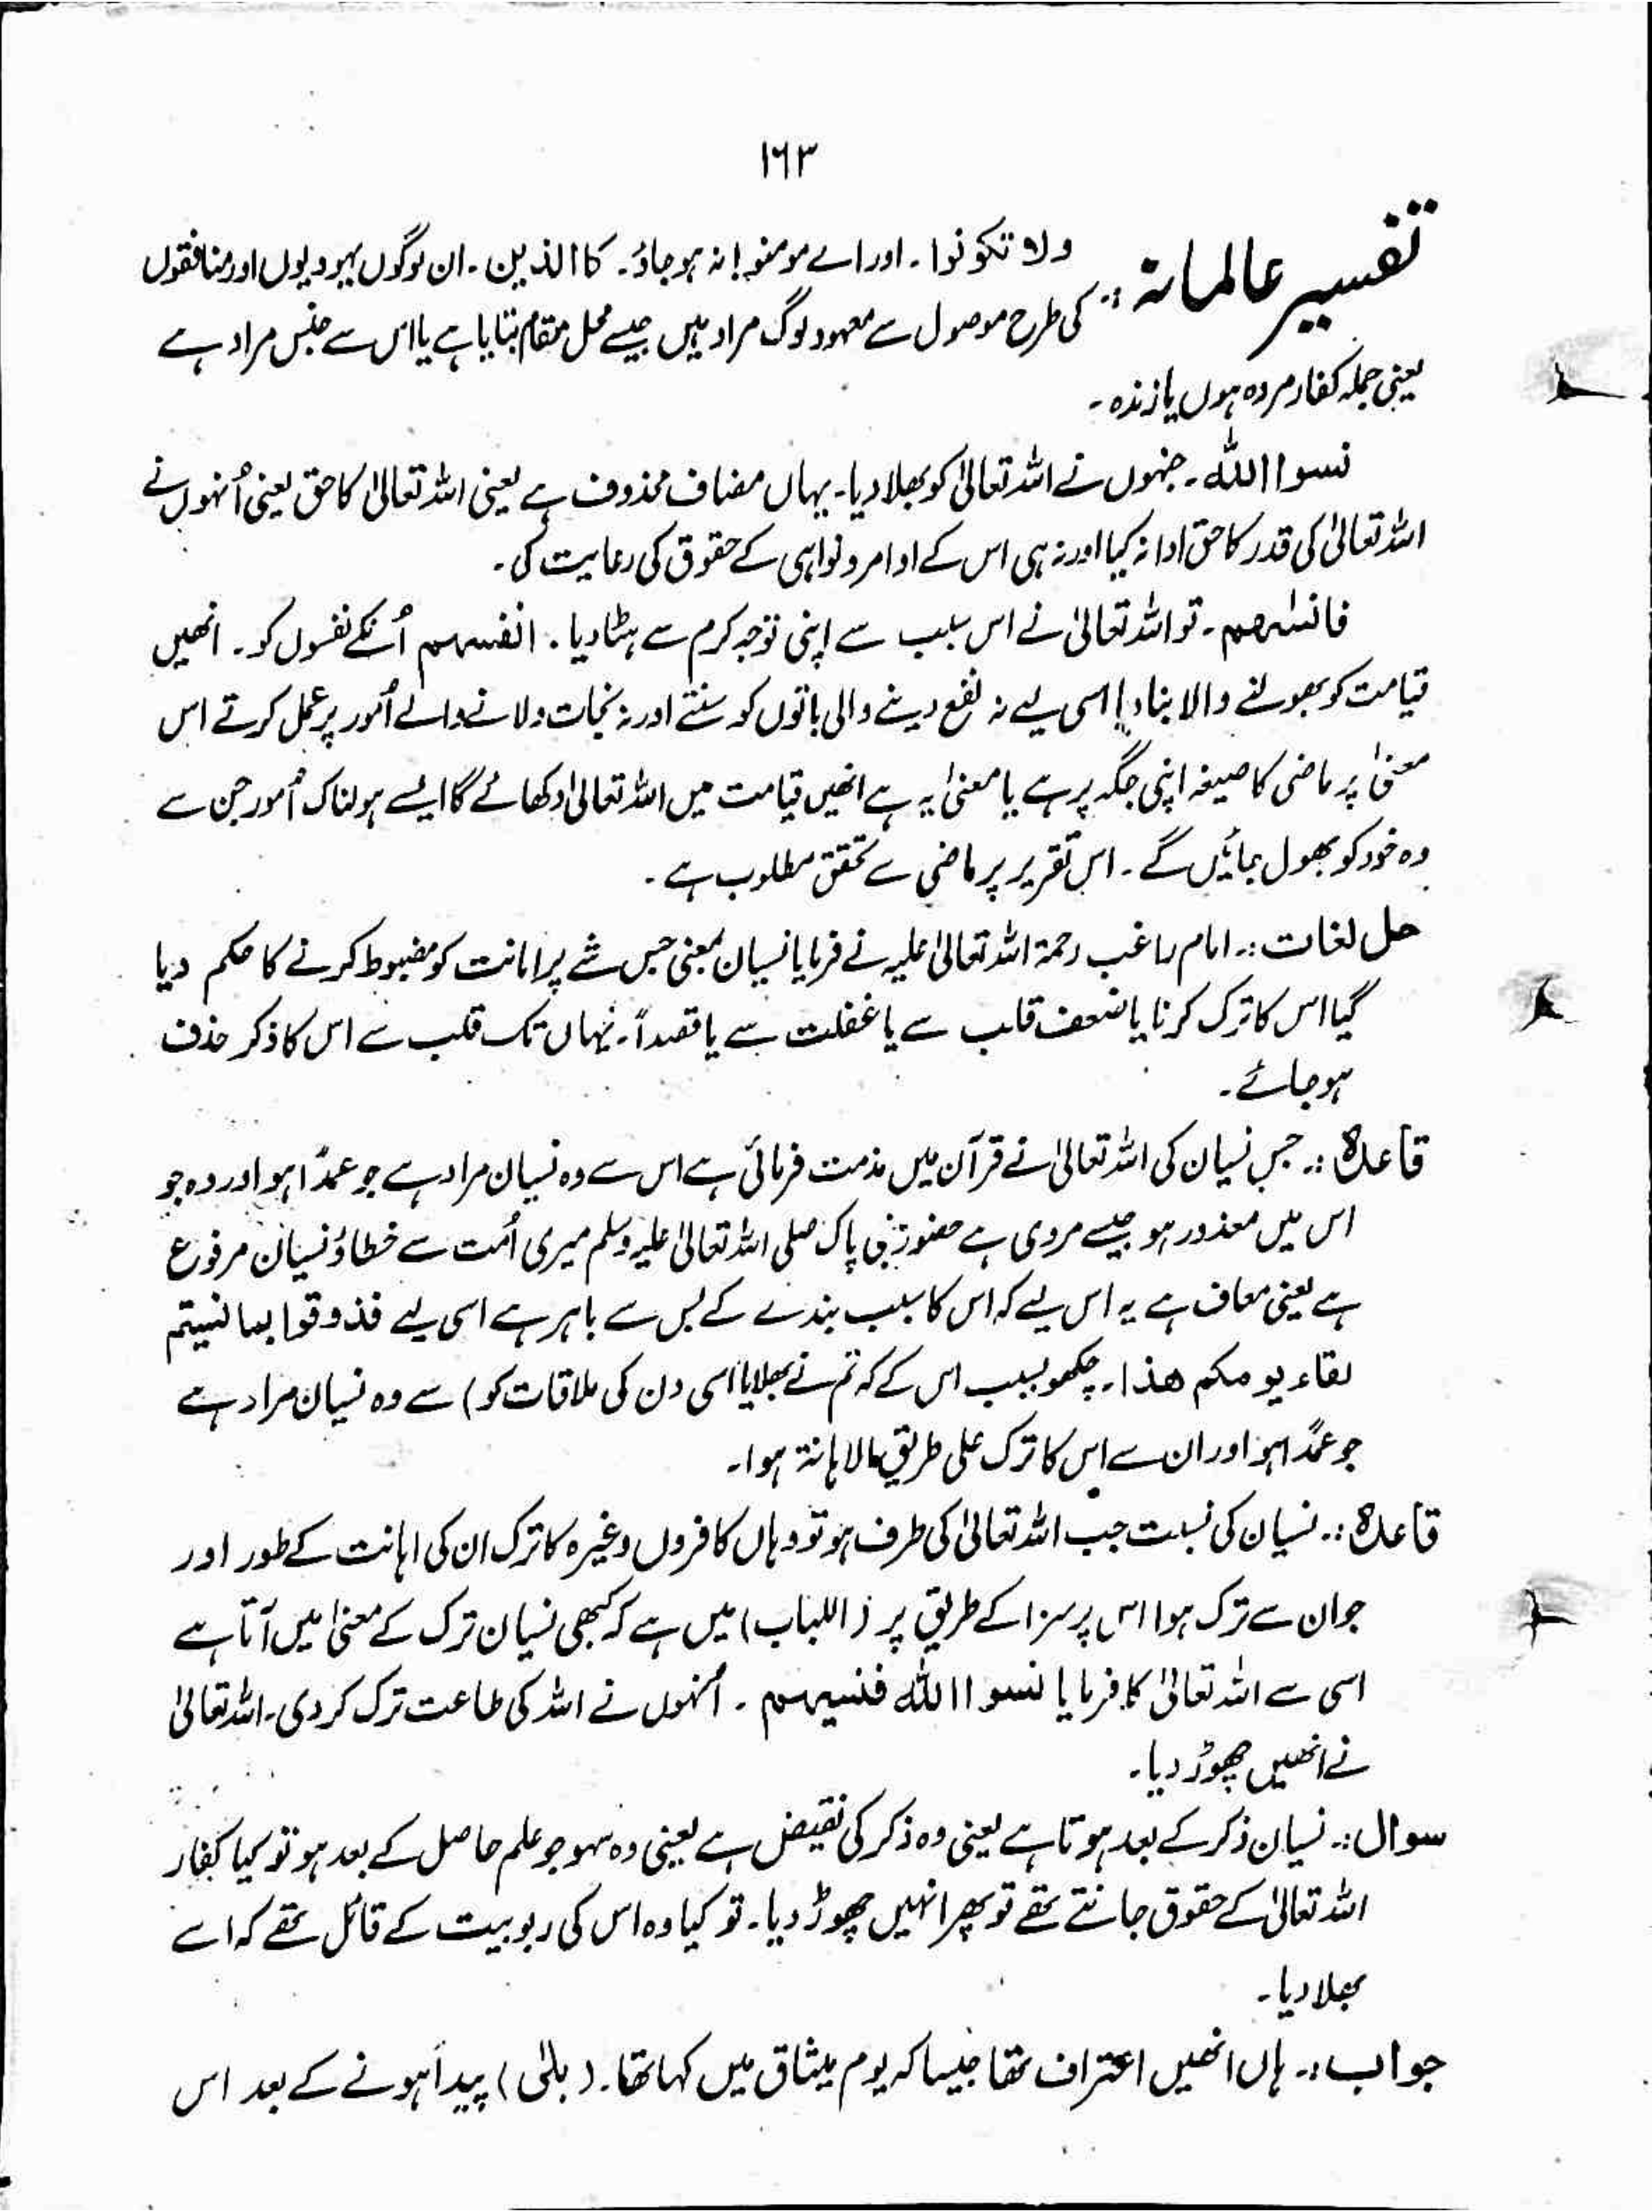 ۱۶۳
تفسیر عالمانہ :۔ ولا تکونوا ۔ اور اے مومنو! نہ ہو جاؤ ۔ کاالذین ۔ ان لوگوں یہودیوں اور منافقوں
کی طرح موصول سے معہود لوگ مراد ہیں جیسے محل مقام بتایا ہے یا اس سے جنس مراد ہے
یعنی جملہ کفار مردہ ہوں یا زندہ ۔
نسوا اللہ ۔ جنہوں نے اللہ تعالیٰ کو بھلا دیا ۔ یہاں مضاف محذوف ہے یعنی اللہ تعالیٰ کا حق یعنی اُنہوں نے
اللہ تعالیٰ کی قدر کا حق ادا نہ کیا اور نہ ہی اس کے اوامر و نواہی کے حقوق کی رعایت کی ۔
فانسٰہم ۔ تو اللہ تعالیٰ نے اس سبب سے اپنی توجہ کرم سے ہٹا دیا ۔ انفسہم اُنکے نفسوں کو ۔ انھیں
قیامت کو بھولنے والا بنا دیا اسی لیے نہ نفع دینے والی باتوں کو سنتے اور نہ نجات دلانے والے اُمور پر عمل کرتے اس
معنیٰ پر ماضی کا صیغہ اپنی جگہ پر ہے یا معنیٰ یہ ہے انھیں قیامت میں اللہ تعالیٰ دکھائے گا ایسے ہولناک اُمور جن سے
وہ خود کو بھول جائیں گے ۔ اس تقریر پر ماضی سے تحقق مطلوب ہے ۔
حل لغات :۔ امام راغب رحمۃ اللہ تعالیٰ علیہ نے فرمایا نسیان بمعنی جس شے پر امانت کو مضبوط کرنے کا حکم دیا
گیا اس کا ترک کرنا یا ضعف قلب سے یا غفلت سے یا قصداً ۔ یہاں تک قلب سے اس کا ذکر حذف
ہو جائے ۔
قاعدہ :۔ جس نسیان کی اللہ تعالیٰ نے قرآن میں مذمت فرمائی ہے اس سے وہ نسیان مراد ہے جو عمداً ہو اور وہ جو
اس میں معذور ہو جیسے مروی ہے حضور نبی پاک صلی اللہ تعالیٰ علیہ وسلم میری اُمت سے خطاؤ نسیان مرفوع
ہے یعنی معاف ہے یہ اس لیے کہ اس کا سبب بندے کے بس سے باہر ہے اسی لیے فذوقوا بما نسیتم
لقاء یومکم ھذا ۔ چکھو بسبب اس کے کہ تم نے بھلایا اسی دن کی ملاقات کو) سے وہ نسیان مراد ہے
جو عمداً ہو اور ان سے اس کا ترک علی طریق الاہانۃ ہوا ۔
قاعدہ :۔ نسیان کی نسبت جب اللہ تعالیٰ کی طرف ہو تو وہاں کافروں وغیرہ کا ترک ان کی اہانت کے طور اور
جو ان سے ترک ہوا اس پر سزا کے طریق پر (اللباب) میں ہے کہ کبھی نسیان ترک کے معنیٰ میں آتا ہے
اسی سے اللہ تعالیٰ کا فرمایا نسوا اللہ فنسیہم ۔ اُنہوں نے اللہ کی طاعت ترک کر دی ۔ اللہ تعالیٰ
نے انھیں چھوڑ دیا ۔
سوال :۔ نسیان ذکر کے بعد ہوتا ہے یعنی وہ ذکر کی نقیض ہے یعنی وہ سہو جو علم حاصل کے بعد ہو تو کیا کفار
اللہ تعالیٰ کے حقوق جانتے تھے تو پھر انہیں چھوڑ دیا ۔ تو کیا وہ اس کی ربوبیت کے قائل تھے کہ اسے
بھلا دیا ۔
جواب :۔ ہاں انھیں اعتراف تھا جیسا کہ یوم میثاق میں کہا تھا ۔ (بلیٰ) پیدا ہونے کے بعد اس